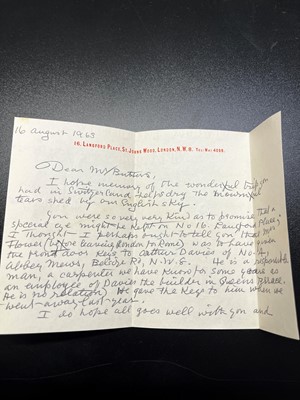 16 August 1963
16, Langford Place, St. Johns Wood, London, N.W.8. Tel: Mai 4222.
Dear Mr Butters,
I hope memory of the wonderful trip you
had in Switzerland helps dry the mournful
tears shed by our English sky.
You were so very very kind as to promise that a
special eye might be kept on No 16 Langford Place,
I thought I perhaps ought to tell you that Mrs
Flower (before leaving London for Rome) was to have given
the front door keys to Arthur Davies of No 4,
Abbey Mews, Belsize Rd, N.W.6. He is a responsible
man, a carpenter we have known for some years as
an employee of Davies the builder in Queens Grove.
He is no relation) We gave the keys to him when we
went away last year.
I do hope all goes well with you and